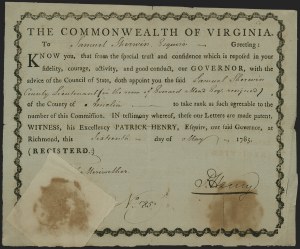 THE COMMONWEALTH OF VIRGINIA.
To Samuel Sherwin, Esquire Greeting:
KNOW you, that from the special trust and confidence which is reposed in your
fidelity, courage, activity, and good conduct, our GOVERNOR, with the
advice of the Council of State, doth appoint you the said Samuel Sherwin
County Lieutenant (in the room of Esq. resigned)
of the County of Amelia to take rank as such agreeable to the
number of this Commission. IN testimony whereof, these our Letters are made patent.
WITNESS, his Excellency PATRICK HENRY, Esquire, our said Governor, at
Richmond, this Sixteenth day of May 1785.
(REGISTERD.)
Meriwether
P. Henry